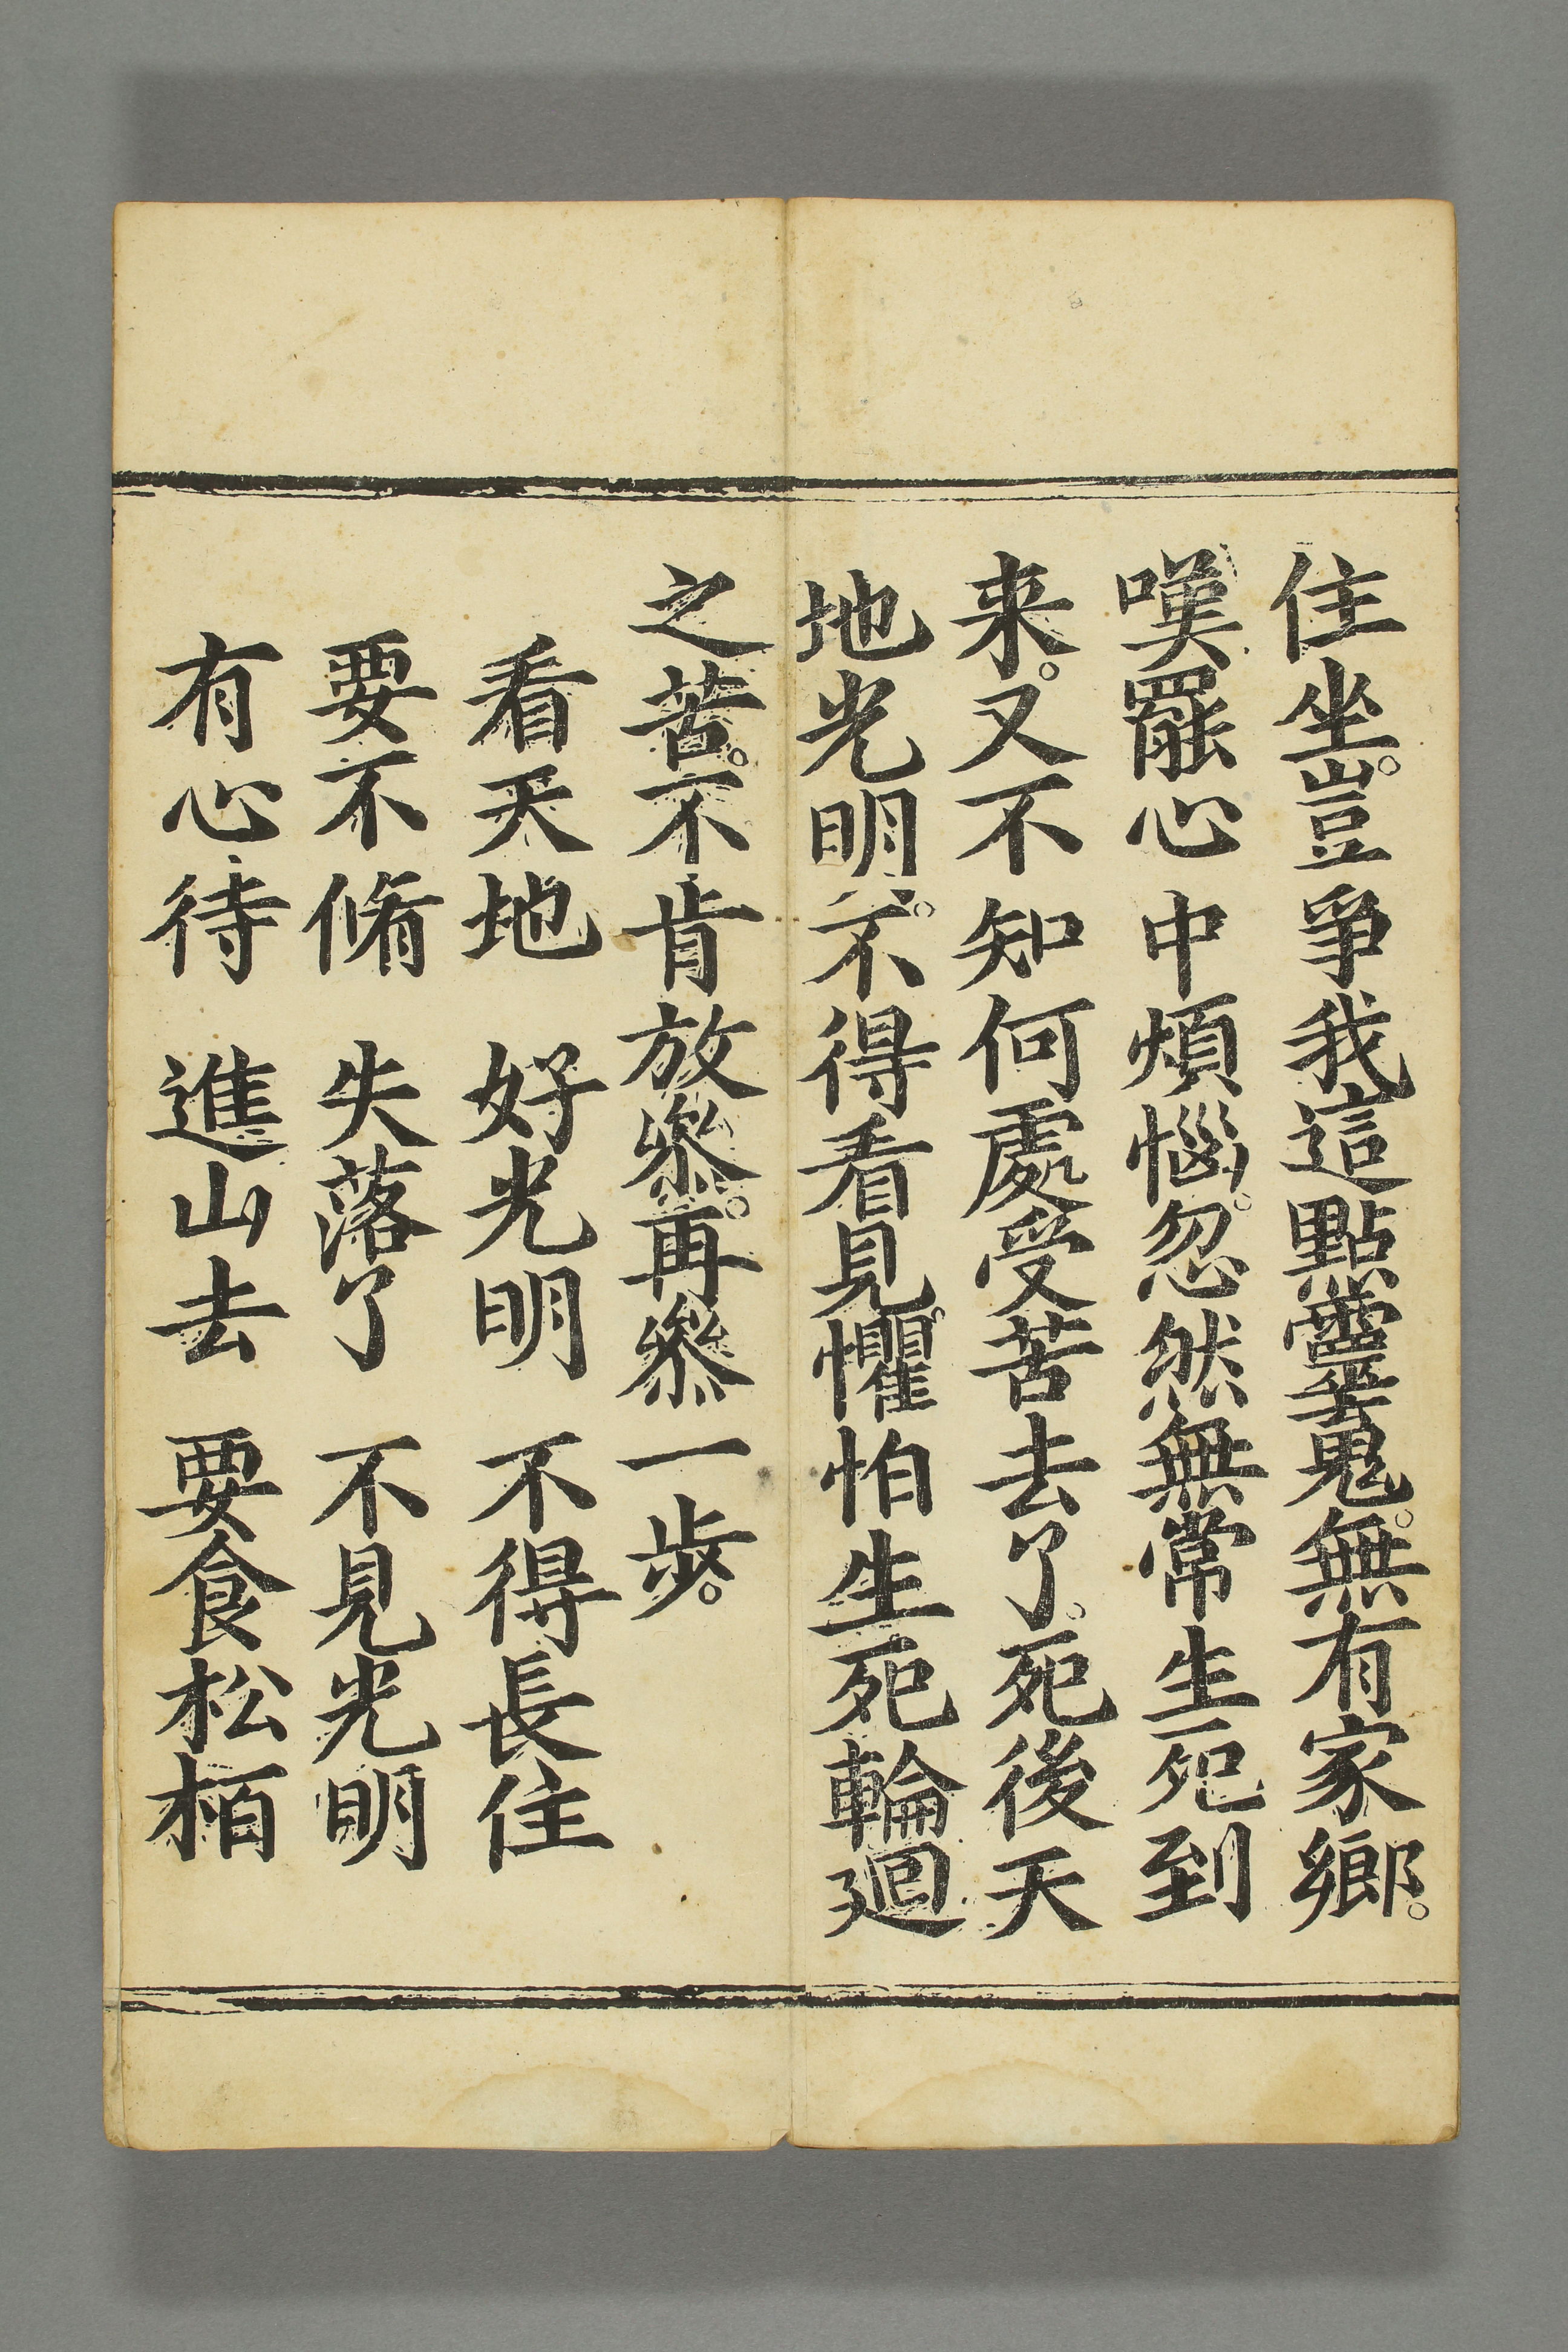 住坐。豈爭我這點靈䰟。無有家鄉。
嘆罷心中煩惱。忽然無常生死到
来。又不知何處受苦去了。死後天
地光明。不得看見。懼怕生死輪廻
之苦。不肯放叅。再叅一步。
看天地　好光明　不得長住
要不脩　失落了　不見光明
有心待　進山去　要食松栢